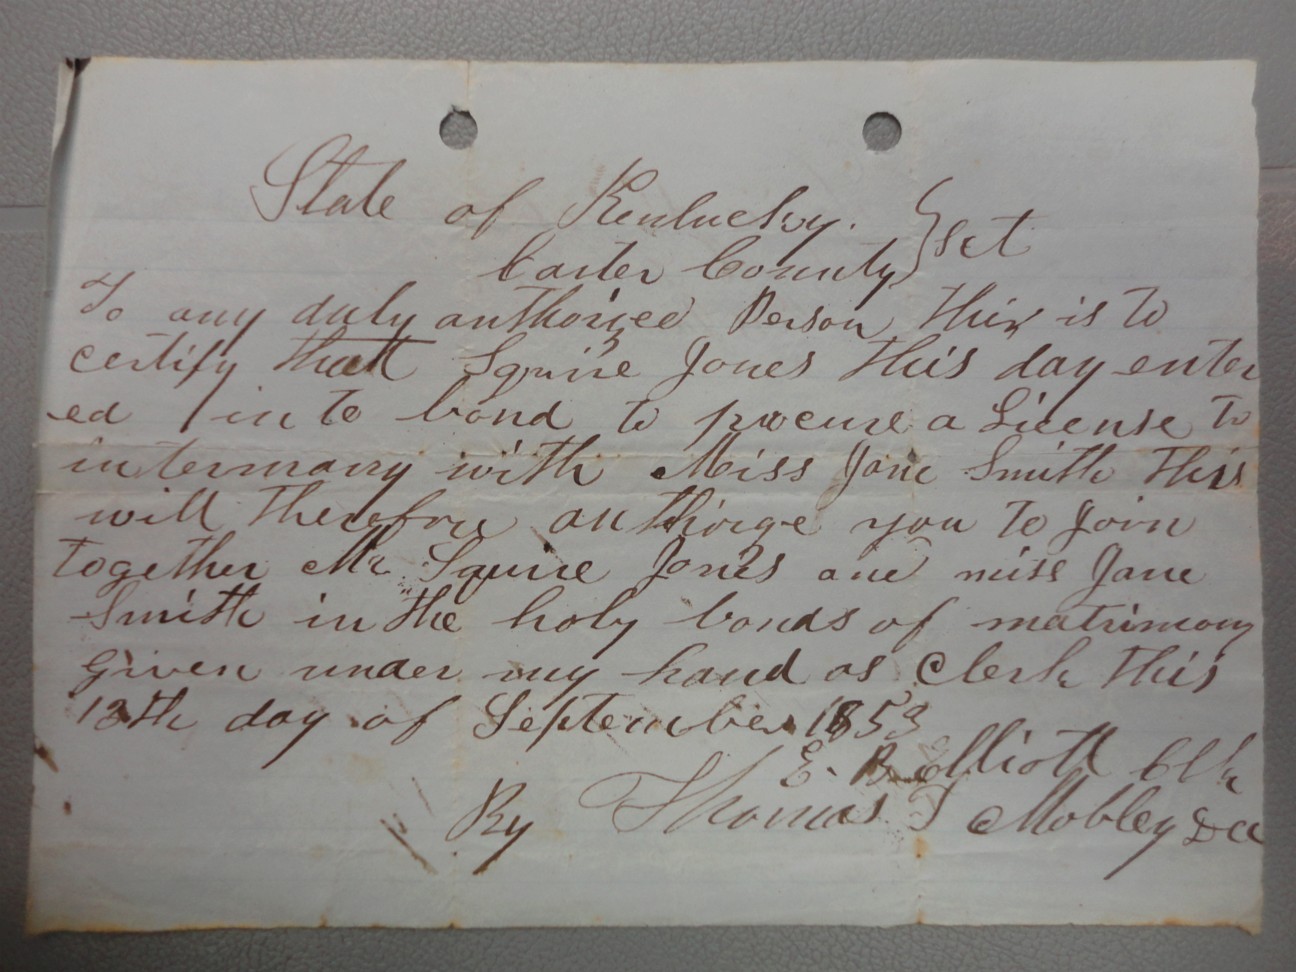 State of Kentucky. } sct
Carter County
To any duly authorized Person This is to
certify that Squire Jones This day enter
ed in to bond to procure a License to
intermarry with Miss Jane Smith This
will Therefore authorize you To Join
Together Mr Squire Jones and miss Jane
Smith in the holy bonds of matrimony
Given under my hand as Clerk This
13th day of September 1853
E. B. Elliott Clk
By Thomas T Mobley